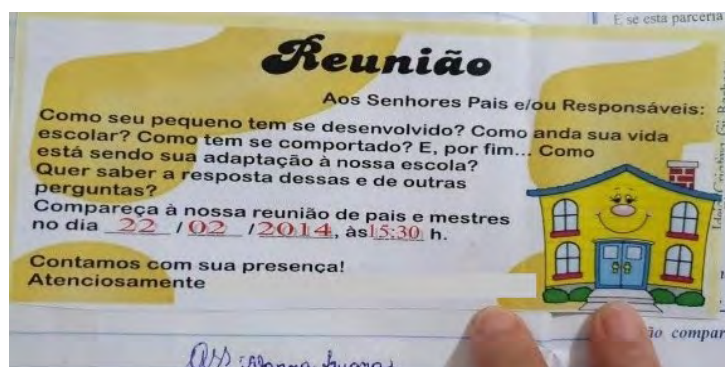 E se esta parceria
Reunião
Aos Senhores Pais e/ou Responsáveis:
Como seu pequeno tem se desenvolvido? Como anda sua vida
escolar? Como tem se comportado? E, por fim... Como
está sendo sua adaptação à nossa escola?
Quer saber a resposta dessas e de outras
perguntas?
Compareça à nossa reunião de pais e mestres
no dia 22 / 02 / 2014, às 15:30 h.
Contamos com sua presença!
Atenciosamente
ão compar